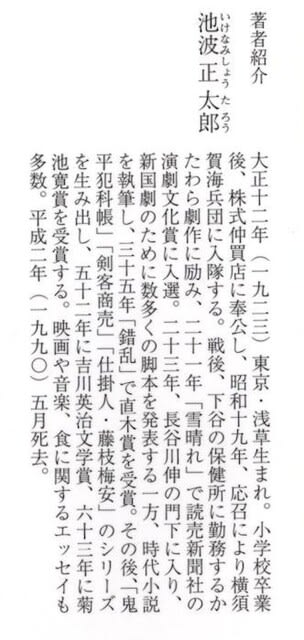 著者紹介
いけなみしょうたろう
池波正太郎
大正十二年（一九二三）東京・浅草生まれ。小学校卒業
後、株式仲買店に奉公し、昭和十九年、応召により横須
賀海兵団に入隊する。戦後、下谷の保健所に勤務するか
たわら劇作に励み、二十一年「雪晴れ」で読売新聞社の
演劇文化賞に入選。二十三年、長谷川伸の門下に入り、
新国劇のために数多くの脚本を発表する一方、時代小説
を執筆し、三十五年「錯乱」で直木賞を受賞。その後、「鬼
平犯科帳」「剣客商売」「仕掛人・藤枝梅安」のシリーズ
を生み出し、五十二年に吉川英治文学賞、六十三年に菊
池寛賞を受賞する。映画や音楽、食に関するエッセイも
多数。平成二年（一九九〇）五月死去。